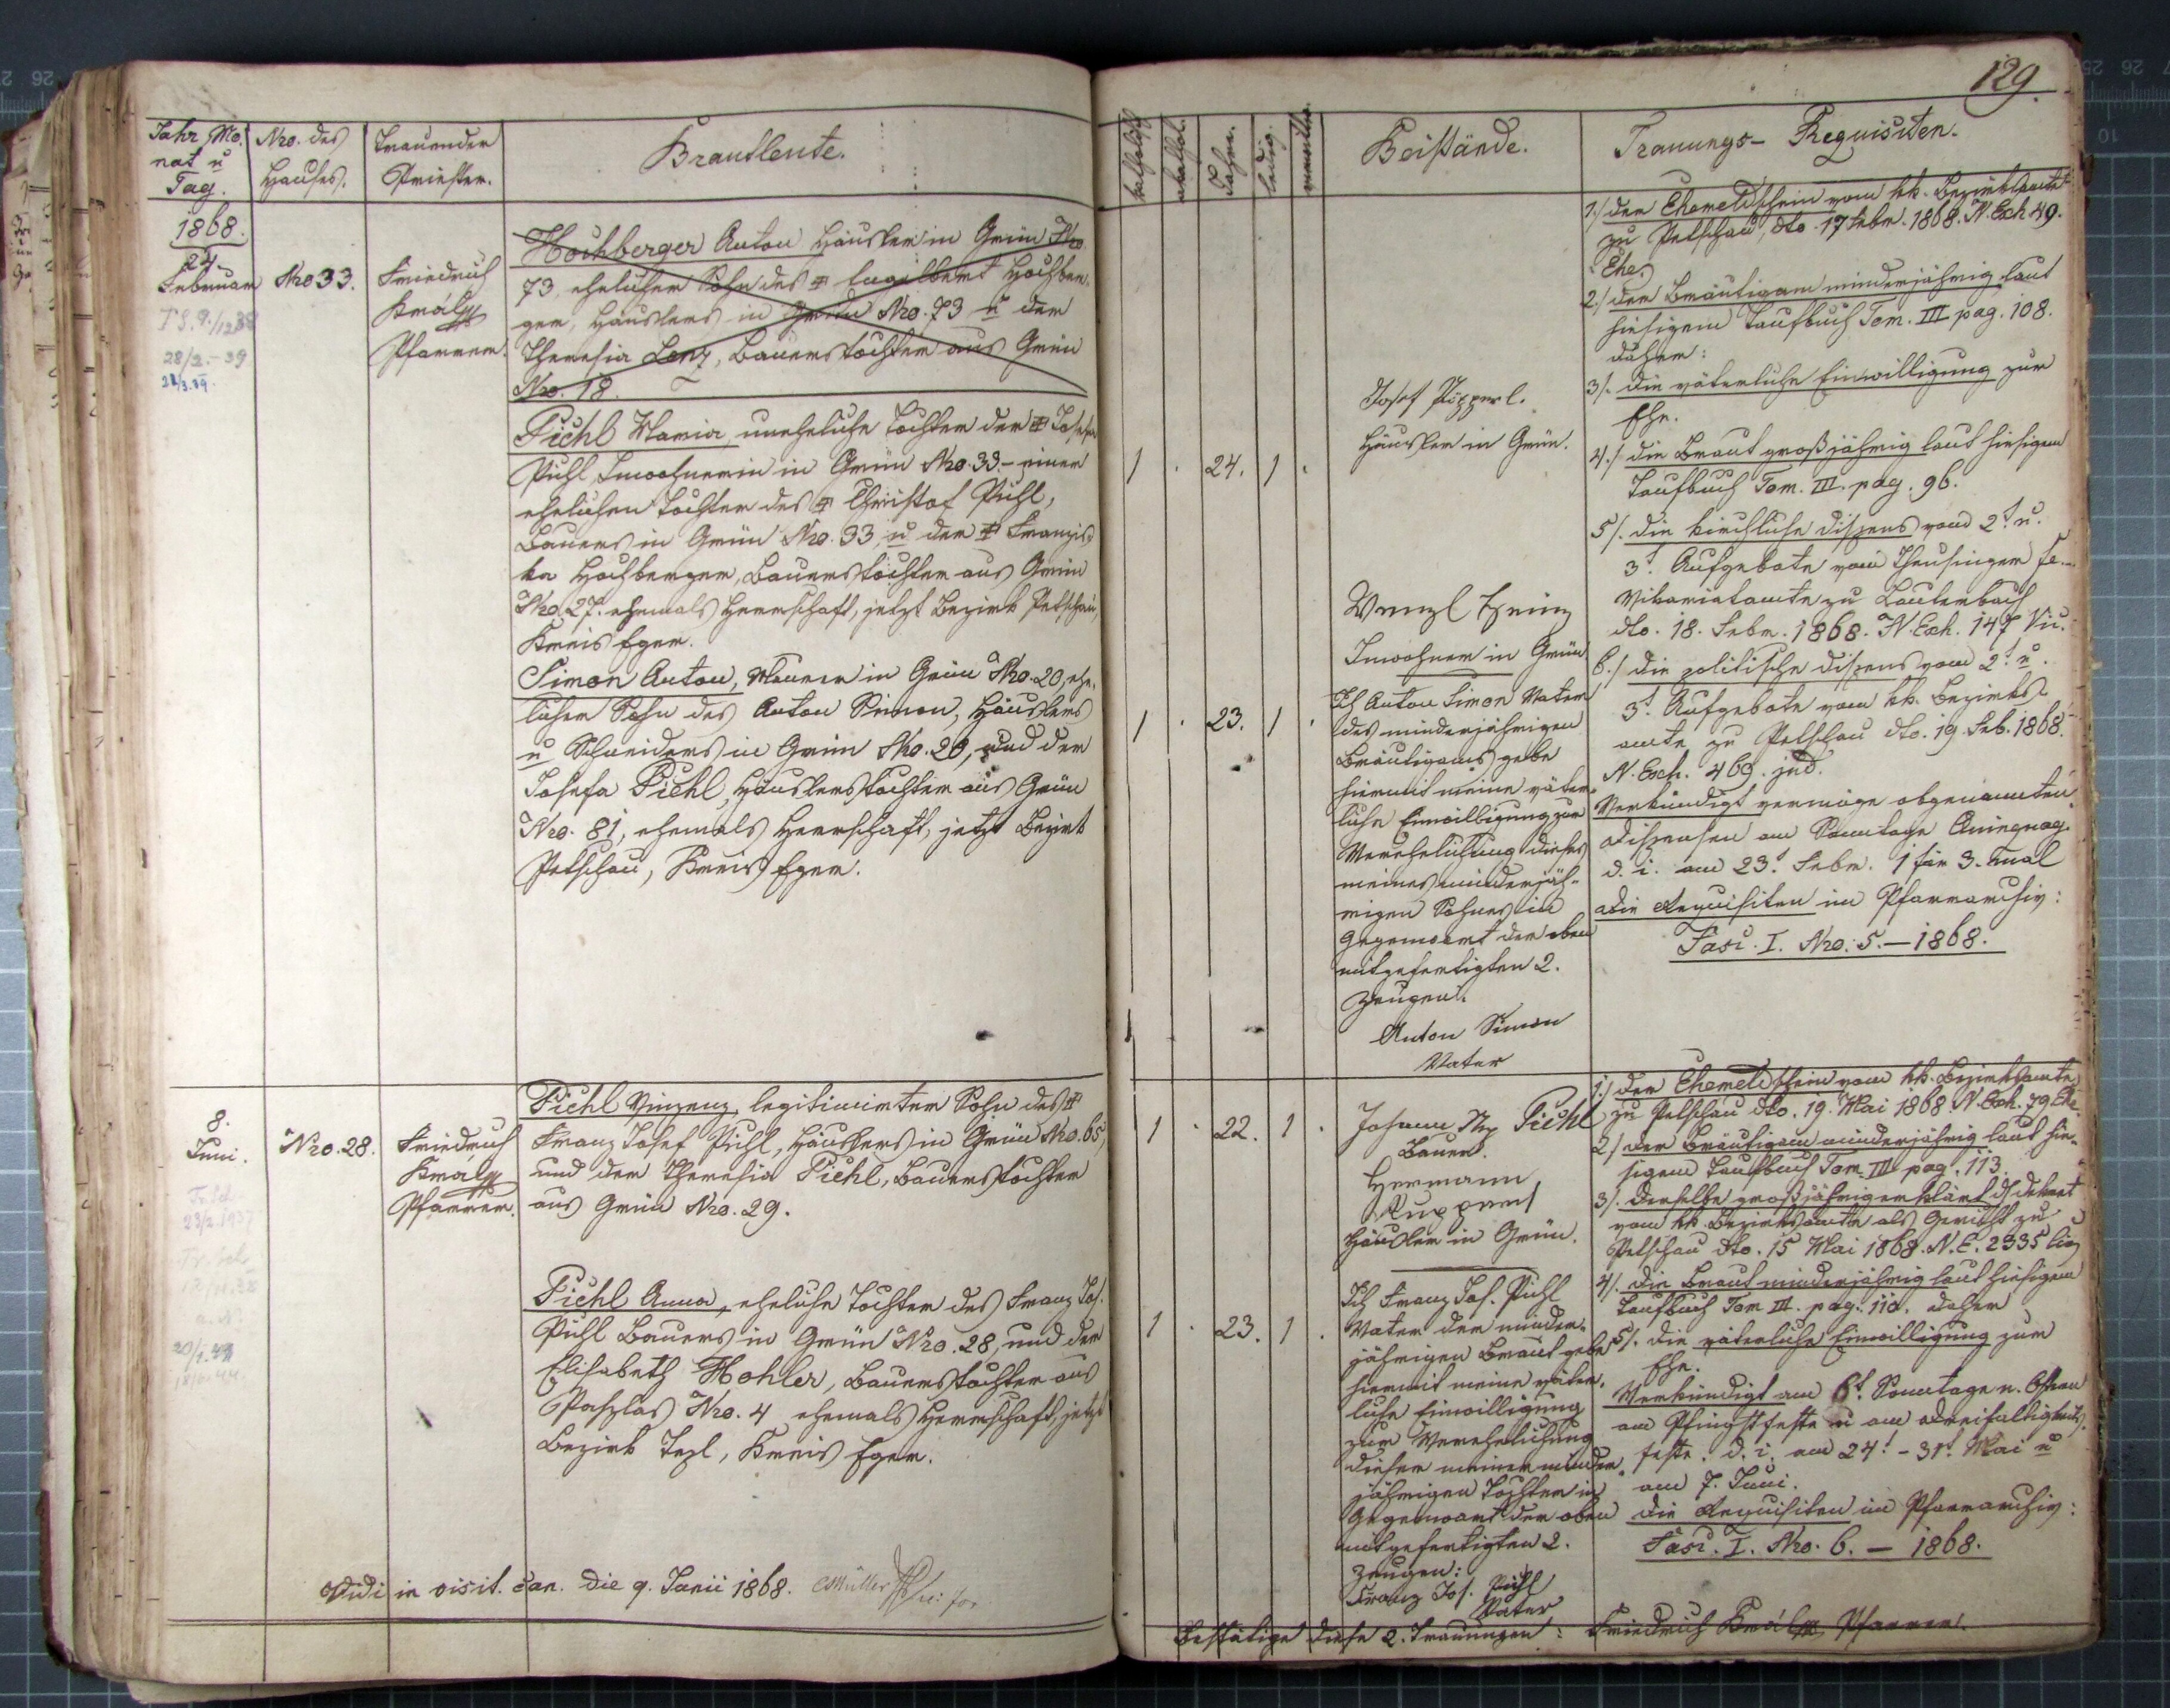 129.
Jahr Mo.
nat u
Tag.
Nro. des
Hauses.
Trauender
Priester.
Brautleute.
katholisch
akathol.
Jahre.
ledig.
Beistände.
Trauungs- Requisiten.
1868.
24.
Februar
28/2.-39
Nro 33.
Friedrich
Král
Pfarrer.
Hochberger Anton Häusler in Grün Nro
73, ehelicher Sohn des ✝ Engelbert Hochber-
ger, Häuslers in Grün Nro. 73 u der
Theresia Lenz, Bauerstochter aus Grün
Nro. 18.
Pichl Maria, uneheliche Tochter der ✝ Josefa
Pichl, Inwohnerin in Grün Nro. 33.- einer
ehelichen Tochter des ✝ Christof Pichl,
Bauers in Grün Nro. 33, u der ✝ Franzis-
ka Hochberger, Bauerstochter aus Grün
Nro. 27. ehemals Herrschaft, jetzt Bezirk Petschau,
Kreis Eger.
Simon Anton, Maurer in Grün Nro. 20, ehe-
licher Sohn des Anton Simon, Häuslers
u Schneiders in Grün Nro. 20, und der
Josefa Pichl, Häuslerstochter aus Grün
Nro. 81, ehemals Herrschaft, jetzt Bezirk
Petschau, Kreis Eger.
1 . 24. 1 .
1 . 23. 1 .
Josef
Häusler in Grün.
Wenzl Heinz
Inwohner in Grün
Ich Anton Simon Vater
des minderjährigen
Bräutigams gebe
hiermit meine väter-
liche Einwilligung zur
Verehelichung dieses
meines minderjäh-
rigen Sohnes in
Gegenwart der oben
mitgefertigten 2.
Zeugen.
Anton Simon
Vater
1./ der Ehemeldschein vom kk. Bezirksamte
zu Petschau, dto. 17 Febr. 1868. N. Exh 49.
Ehe.
2./ der Bräutigam minderjährig laut
hiesigem Taufbuch Tom. III pag. 108.
daher:
3/. die väterliche Einwilligung zur
Ehe.
4./ die Braut großjährig laut hiesigem
Taufbuch Tom. III. pag. 96.
5/. die kirchliche Dispens vom 2t. u.
3t. Aufgebote vom Theusinger
Vikariatamte zu Lauterbach
dto. 18. Febr. 1868. N. Exh. 147 Vic.
6./ die politische Dispens vom 2t. u.
3t. Aufgebote vom kk. Bezirks-
amte zu Petschau dto. 19. Feb. 1868.
N. Exh. 469. jud.
Verkündigt vermöge obgenannten
Dispensen am Sonntage Quinquag.
d. i. am 23t. Febr. 1 für 3. mal
die Requisiten im Pfarrarchiv:
Fasc. I. Nro. 5.—1868.
8.
Juni.
Nro. 28.
Friedrich
Král
Pfarrer.
Pichl Vinzenz, legitimirter Sohn des ✝
Franz Josef Pichl, Häuslers in Grün Nro. 65,
und der Theresia Pichl, Bauerstochter
aus Grün Nro. 29.
Pichl Anna, eheliche Tochter des Franz Jos.
Pichl Bauers in Grün Nro. 28, und der
Elisabeth Hohler, Bauerstochter aus
Paslas Nro. 4 ehemals Herrschaft, jetzt
Bezirk Tepl, Kreis Eger.
1 . 22. 1 .
1 . 23. 1 .
Johann Pichl
Bauer.
Hermann
Ruppert
Häusler in Grün.
Ich Franz Jos. Pichl
Vater der minder-
jährigen Braut gebe
hiermit meine väter-
liche Einwilligung
zur Verehelichung
dieser meiner minder-
jährigen Tochter in
Gegenwart der oben
mitgefertigten 2.
Zeugen:
Franz Jos. Pichl
Vater
1./ der Ehemeldschein vom kk. Bezirksamte
zu Petschau dto. 19. Mai 1868 N. Exh. 79. Ehe.
2./ der Bräutigam minderjährig laut hie-
sigem Taufbuch Tom. III pag. 113.
3/. derselbe großjährig erklärt d. Dekret
vom kk. Bezirksamte als Gericht zu
Petschau dto. 15 Mai 1868. N. E. 2335
4/. die Braut minderjährig laut hiesigem
Taufbuch Tom III. pag. 110. daher
5/. die väterliche Einwilligung zur
Ehe.
Verkündigt am 6t. Sonntage n. Ostern
am Pfingstfeste u am Dreifaltigkeits-
feste. d. i. am 24t. - 31t. Mai u
am 7. Juni.
die Requisiten im Pfarrarchiv:
Fasc. I. Nro. 6. — 1868.
Vidi in visit. can. die 9. Junii 1868. Müller
Bestätige diese 2. Trauungen: Friedrich Král Pfarrer.